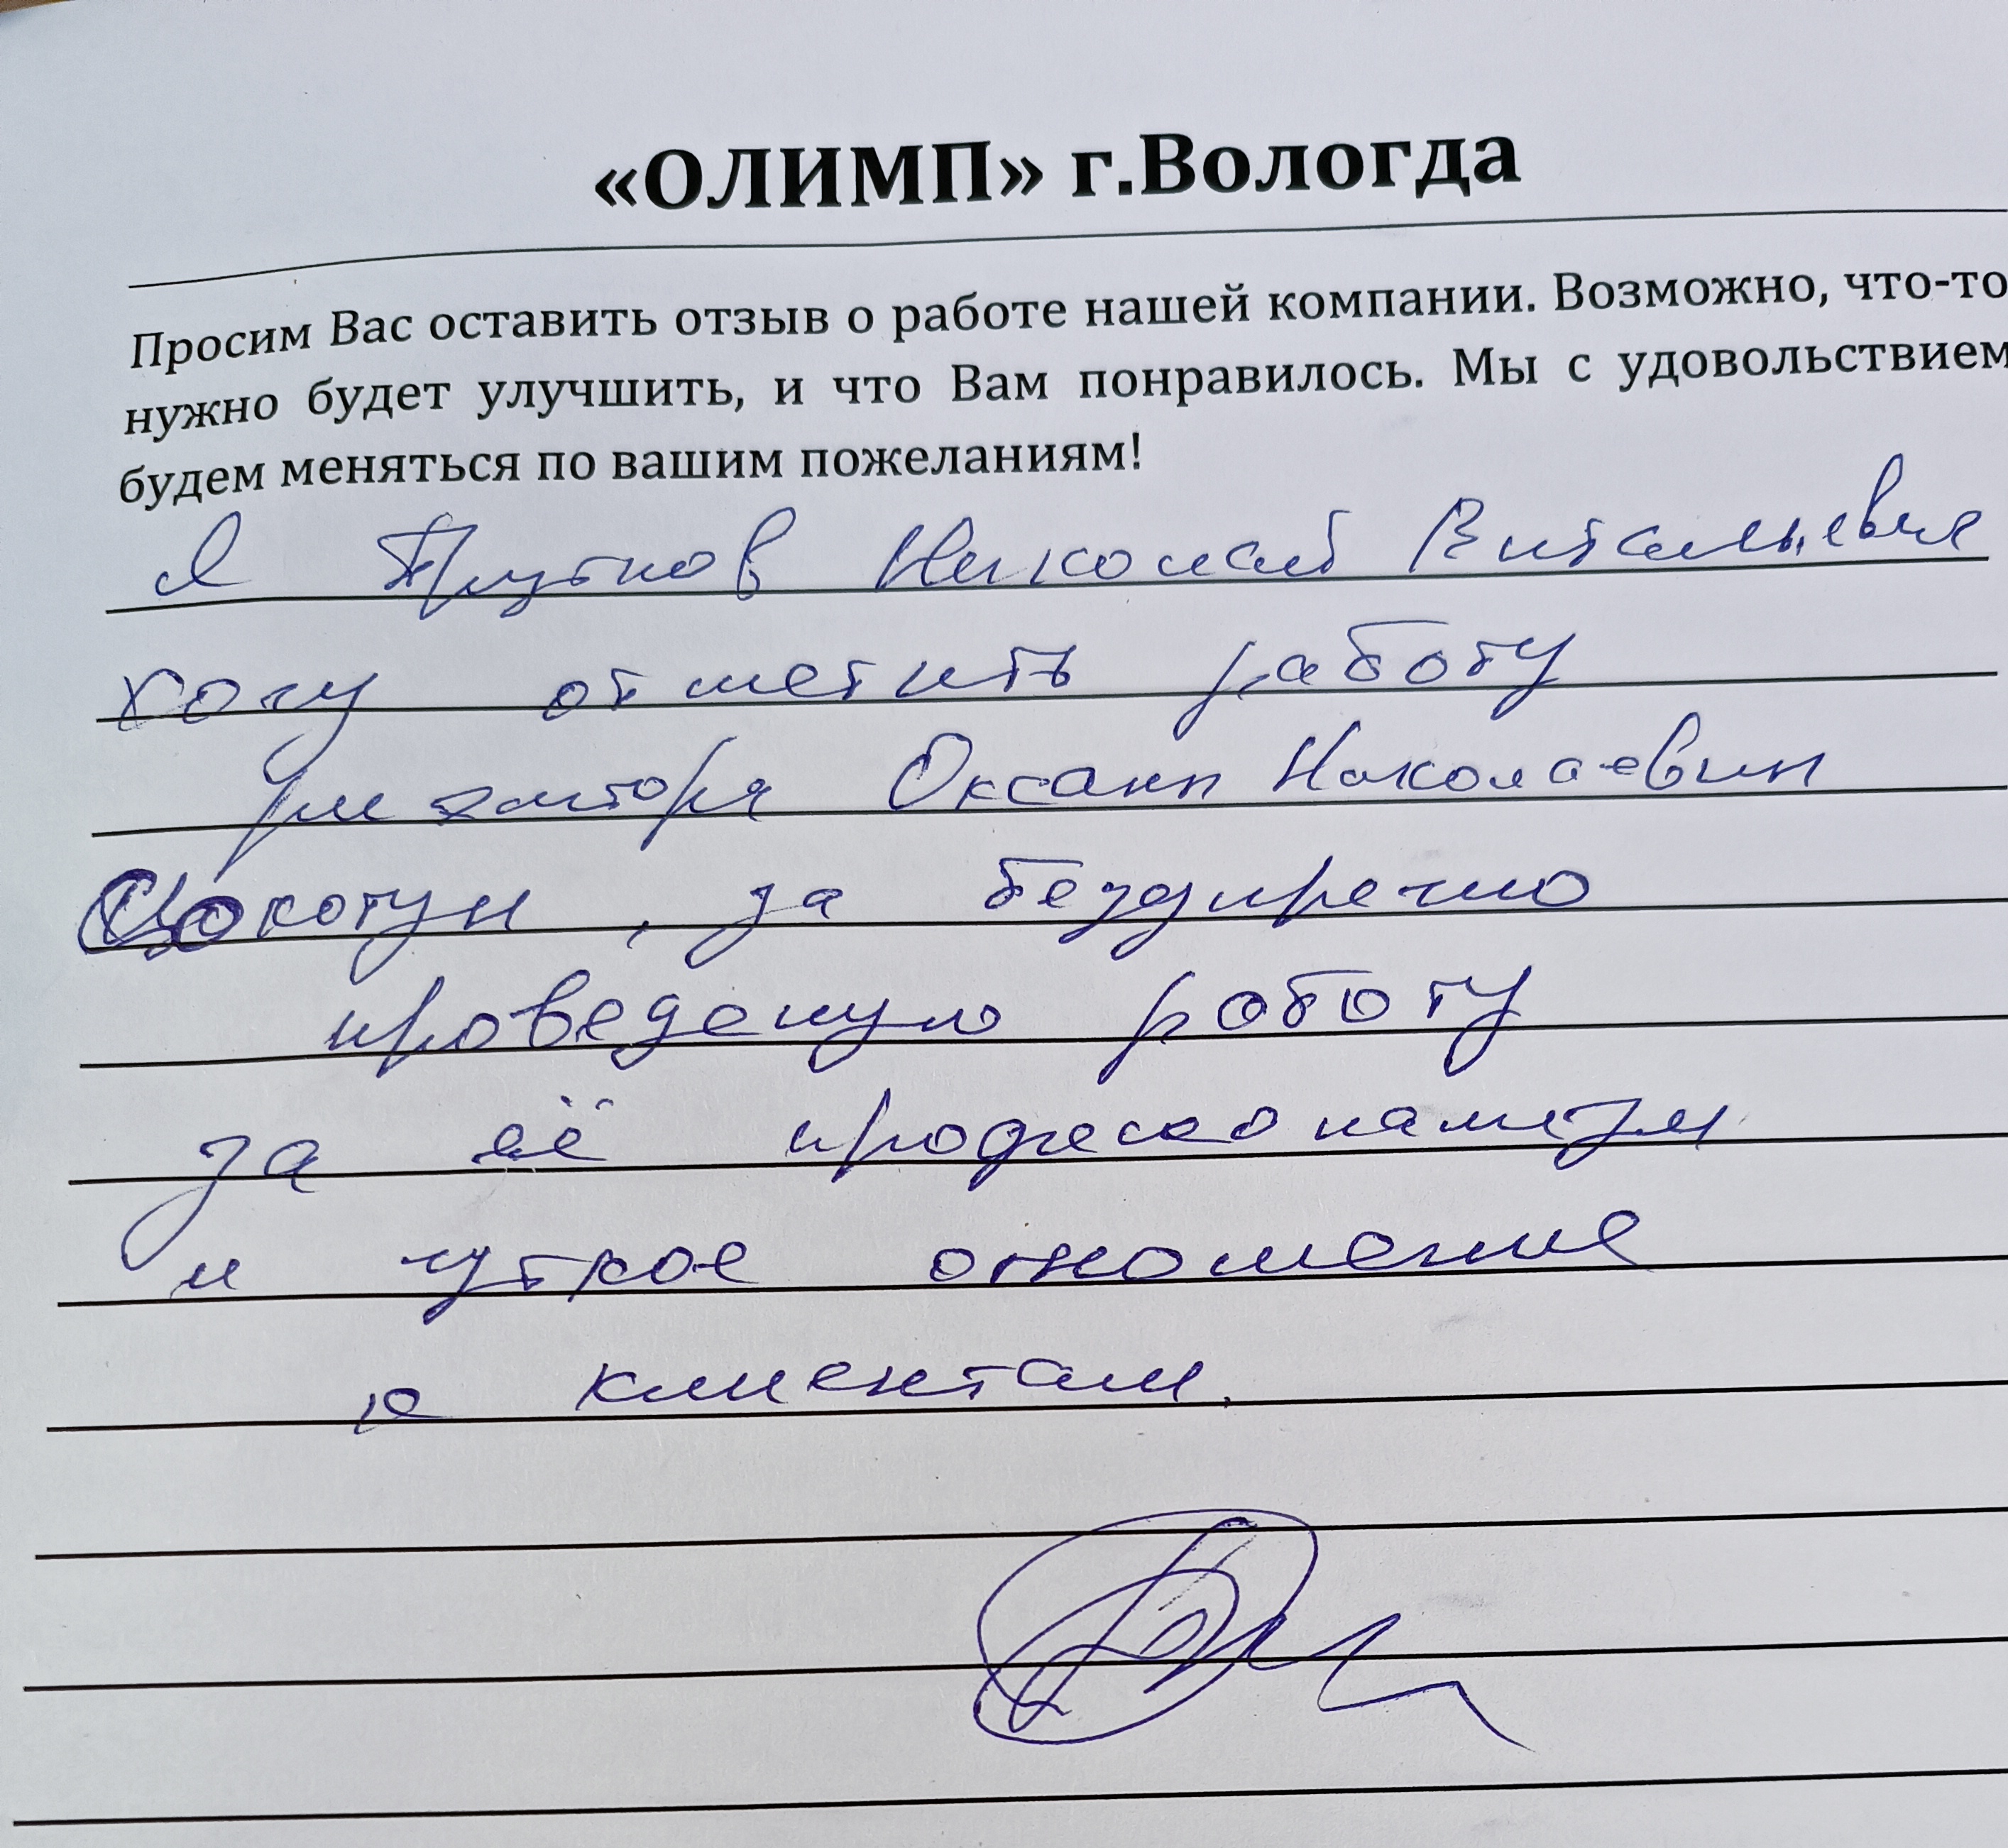 «ОЛИМП» г.Вологда
Просим Вас оставить отзыв о работе нашей компании. Возможно, что-то
нужно будет улучшить, и что Вам понравилось. Мы с удовольствием
будем меняться по вашим пожеланиям!
Я Николай Витальевич
хочу отметить работу
Оксаны Николаевны
Цокотун, за безупречно
проведеную работу
за её професионализм
и чуткое отношение
к клиентам.